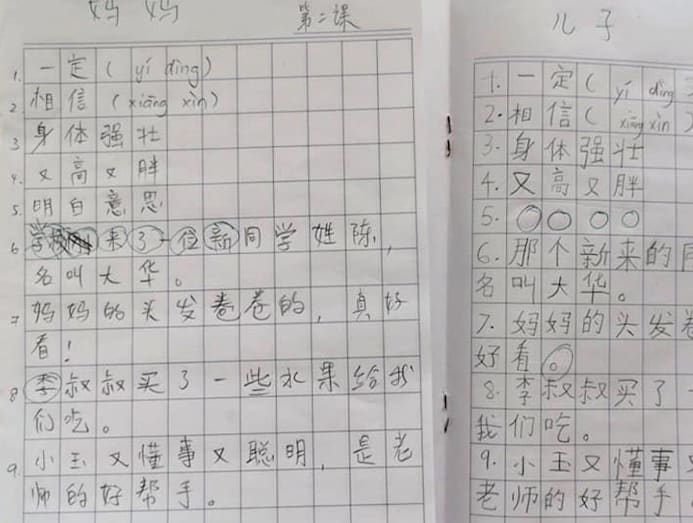 妈妈
第二课
1. 一定(yí dìng)
2 相信(xiāng xìn)
3 身体强壮
4. 又高又胖
5. 明白意思
6 学校来了一位新同学姓陈,
名叫大华。
7 妈妈的头发卷卷的,真好
看!
8 李叔叔买了一些水果给我
们吃。
9. 小玉又懂事又聪明,是老
师的好帮手。
儿子
1. 一定(yí dìng
2. 相信(xiāng xìn)
3. 身体强壮
4. 又高又胖
5. ○○○○
6. 那个新来的同
名叫大华。
7. 妈妈的头发卷
好看。
8. 李叔叔买了一
我们吃。
9. 小玉又懂事又
老师的好帮手